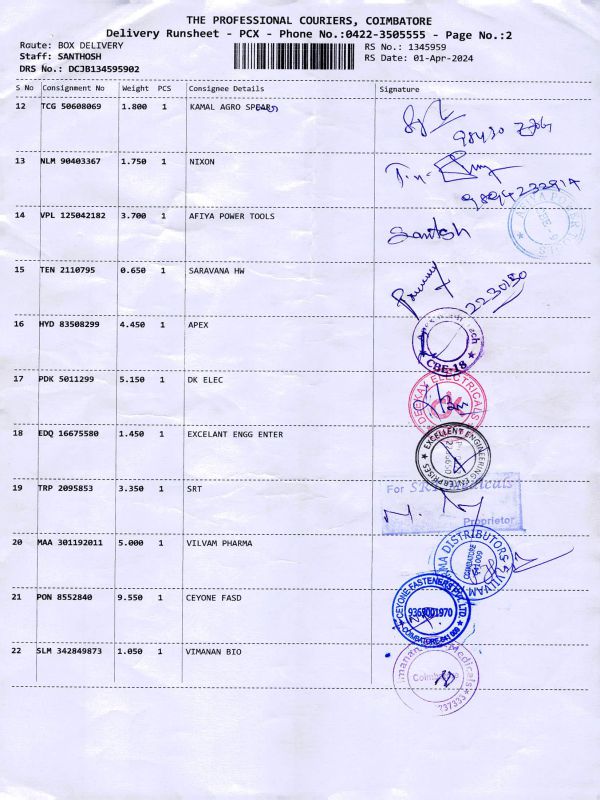 THE PROFESSIONAL COURIERS, COIMBATORE
Delivery Runsheet - PCX - Phone No.:0422-3505555 - Page No.:2
Route: BOX DELIVERY RS No.: 1345959
Staff: SANTHOSH RS Date: 01-Apr-2024
DRS No.: DCJB134595902
S No Consignment No Weight PCS Consignee Details Signature
12 TCG 50608069 1.800 1 KAMAL AGRO
98430
13 NLM 90403367 1.750 1 NIXON
9894232914
14 VPL 125042182 3.700 1 AFIYA POWER TOOLS
Santosh
15 TEN 2110795 0.650 1 SARAVANA HW
2230150
16 HYD 83508299 4.450 1 APEX
CBE-18
17 PDK 5011299 5.150 1 DK ELEC
DEEKAY ELECTRICALS
18 EDQ 16675580 1.450 1 EXCELANT ENGG ENTER
EXCELLENT ENGINEERING ENTERPRISES
19 TRP 2095853 3.350 1 SRT
For
Proprietor
20 MAA 301192011 5.000 1 VILVAM PHARMA
DISTRIBUTORS
COIMBATORE
641009
21 PON 8552840 9.550 1 CEYONE FASD
CEYONE FASTENERS PVT LTD
COIMBATORE
22 SLM 342849873 1.050 1 VIMANAN BIO
Medicals
237333